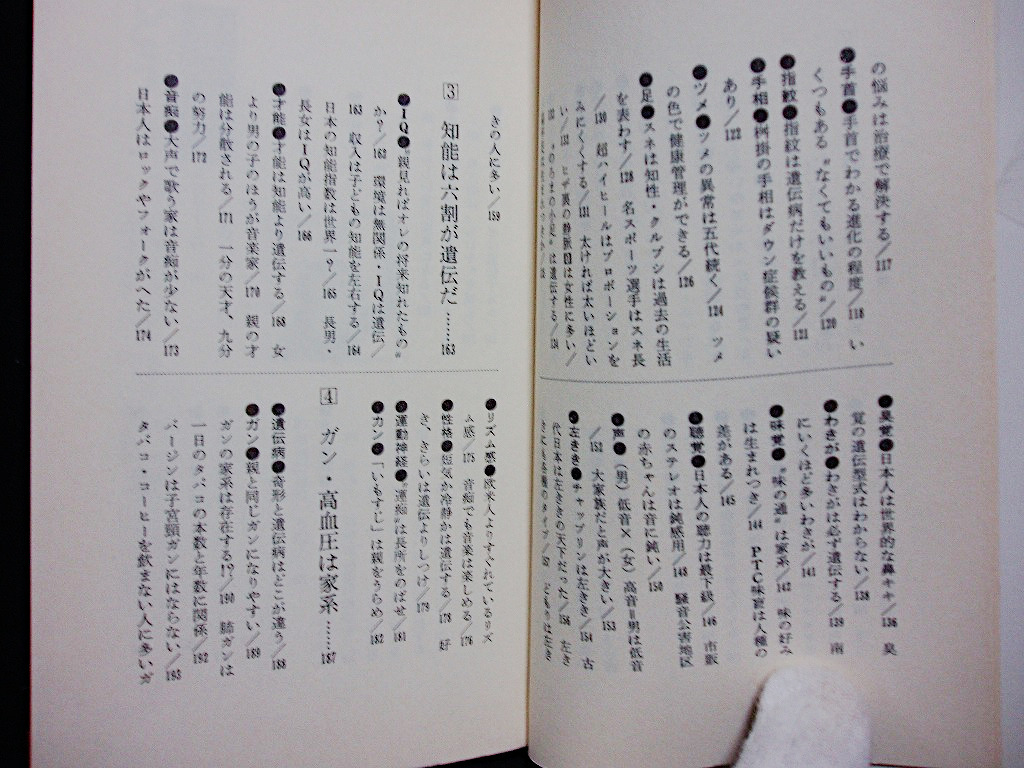 の悩みは治療で解決する／117
●手首●手首でわかる進化の程度／118　い
くつもある〝なくてもいいもの〟／120
●指紋●指紋は遺伝病だけを教える／121
●手相●桝掛の手相はダウン症候群の疑い
あり／122
●ツメ●ツメの異常は五代続く／124　ツメ
の色で健康管理ができる／126
●足●スネは知性・クルブシは過去の生活
を表わす／128　名スポーツ選手はスネ長
／130　超ハイヒールはプロポーションを
みにくくする／131　太ければ太いほどい
い／131　ヒザ裏の静脈図は女性に多い／
は遺伝する／134
●臭覚●日本人は世界的な鼻キキ／136　臭
覚の遺伝型式はわからない／138
●わきが●わきがは必ず遺伝する／139　南
にいくほど多いわきが／141
●味覚●〝味の通〟は家系／142　味の好み
は生まれつき／144　PTC味盲は人種の
差がある／145
●聴覚●日本人の聴力は最下級／146　市販
のステレオは鈍感用／148　騒音公害地区
の赤ちゃんは音に鈍い／150
●声●（男）低音×（女）高音＝男は低音
／151　大家族だと声が大きい／153
●左きき●チャップリンは左きき／154　古
代日本は左ききの天下だった／156　左き
きにも各種のタイプ／157　どもりは左き
きの人に多い／159
３　知能は六割が遺伝だ……163
●ＩＱ●〝親見ればオレの将来知れたもの〟
か？／163　環境は無関係・ＩＱは遺伝／
163　収入は子どもの知能を左右する／164
日本の知能指数は世界一？／165　長男・
長女はＩＱが高い／166
●才能●才能は知能より遺伝する／168　女
より男の子のほうが音楽家／170　親の才
能は分散される／171　一分の天才、九分
の努力／172
●音痴●大声で歌う家は音痴が少ない／173
日本人はロックやフォークがへた／174
●リズム感●欧米人よりすぐれているリズ
ム感／175　音痴でも音楽は楽しめる／176
●性格●短気か冷静かは遺伝する／178　好
き、きらいは遺伝よりしつけ／179
●運動神経●〝運痴〟は長所をのばせ／181
●カン●「いもすじ」は親をうらめ／182
４　ガン・高血圧は家系……187
●遺伝病●奇形と遺伝病はどこが違う／188
●ガン●親と同じガンになりやすい／189
ガンの家系は存在する!?／190　肺ガンは
一日のタバコの本数と年数に関係／192
バージンは子宮頸ガンにはならない／193
タバコ・コーヒーを飲まない人に多いガ